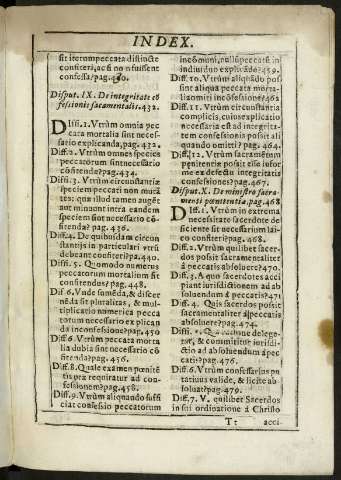 INDEX.
sit iterum peccata distincte
confiteri, ac si non fuissent
confessa? pag.
Disput. IX. De integritate cõ
fessionis sacramentalis. 432.
Diffi. 1. Vtrùm omnia pec
cata mortalia sint neces-
sario explicanda, pag. 432.
Diff. 2. Vtrùm omnes species
peccatorum sint necessario
cõfitenda? pag. 434.
Diffi. 3. Vtrùm circunstantiæ
speciem peccati non muta
tes: quæ illud tamen auget
aut minuunt intra eandem
speciem sint necessario cõ
fitenda? pag. 436.
Diff. 4. De quibusdam circun
stantijs in particulari vtrũ
debeant confiteri? pa. 440.
Diffi. 5. Quomodo numerus
peccatorum mortalium sit
confitendus? pag. 448.
Dif. 6. Vnde sumẽda, & discer
nẽda sit pluralitas, & mul-
tiplicatio numerica pecca
torum necessario explican
da in confessione? pag. 450
Diff. 6 Vtrùm peccata morta
lia dubia sint necessario cõ
fitenda? pag. 456.
Diff. 8. Quale examen pœnitẽ
tis præ requiratur ad con-
fessionem? pag. 458.
Diff. 9. Vtrùm aliquando suffi
ciat confessio peccatorum
in cõmuni, nullo peccato in
individuo explicado? 459.
Diff. 10. Vtrùm aliquãdo pos
sint aliqua peccata morta
lia omitti in cõfessione? 462
Diff. 11. Vtrùm circunstantia
complicis, cuius explicatio
necessaria est ad integrita-
tem confessionis possit ali
quando omitti? pag. 464.
Diff. 12. Vtrùm sacramentum
pœnitentiæ possit esse infor
me ex defectu integritatis
confessiones? pag. 467.
Disput. X. De ministro sacra-
menti pœnitentia. pag. 468
Diff. 1. Vtrùm in extrema
necessitate sacerdote de
ficiente sit necessarium lai-
co confiteri? pag. 468.
Diff. 2. Vtrùm quilibet sacer-
dos possit sacramentaliter
á peccatis absoluere? 470.
Diff. 3. A quo sacerdotes acci
piant iurisdictionem ad ab
soluendum á peccatis? 471
Diff. 4. Quis sacerdos possit
sacramentaliter á peccatis
absoluere? pag. 474.
Diffi. delege-
tur, & committitur iurisdi-
ctio ad absoluendum á pec
catis? pag. 476.
Diff. 6. Vtrùm confessarius pu
tatiuus valide, & licite ab-
soluat? pag. 479.
Diff. 7. V. quilibet Sacerdos
in sui ordinatione á Christo
T t
acci-